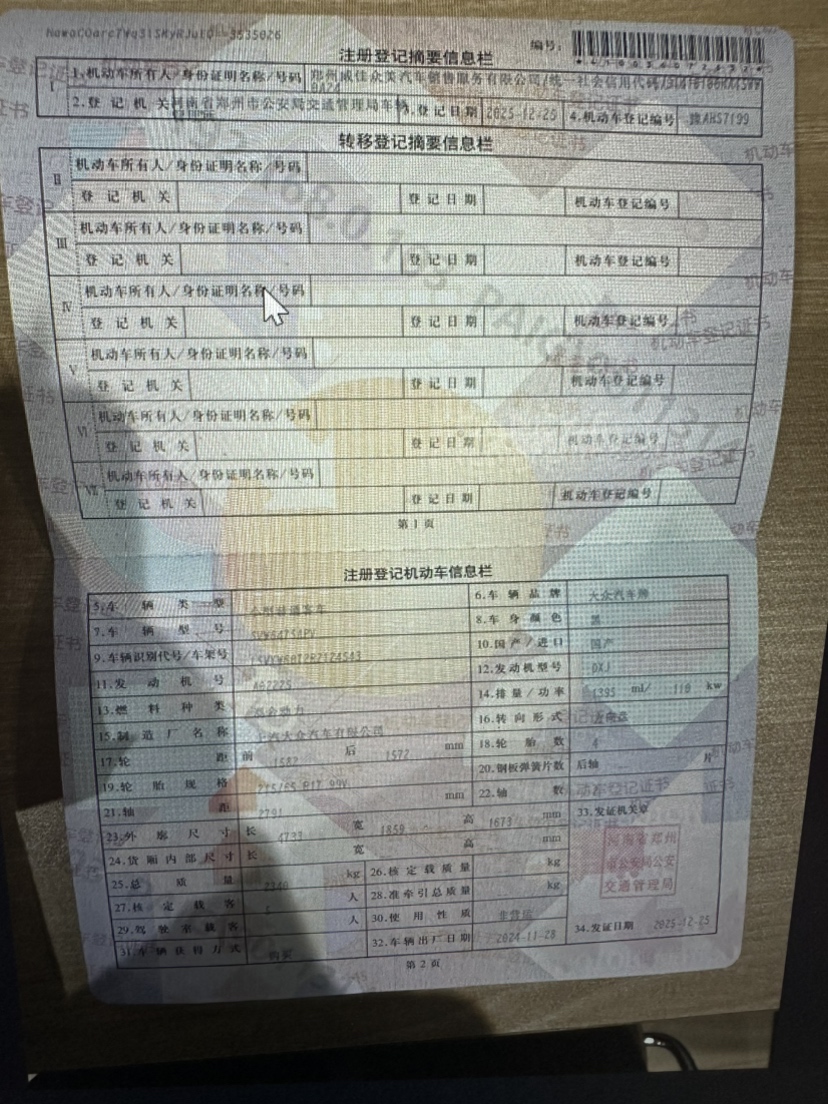 注册登记摘要信息栏
编号:
I
1.机动车所有人/身份证明名称/号码 郑州威佳众美汽车销售服务有限公司/统一社会信用代码
2.登记机关 河南省郑州市公安局交通管理局车辆 3.登记日期 2025-12-25 4.机动车登记编号 豫AHS7199
转移登记摘要信息栏
II
机动车所有人/身份证明名称/号码
登记机关 登记日期 机动车登记编号
III
机动车所有人/身份证明名称/号码
登记机关 登记日期 机动车登记编号
IV
机动车所有人/身份证明名称/号码
登记机关 登记日期 机动车登记编号
V
机动车所有人/身份证明名称/号码
登记机关 登记日期 机动车登记编号
VI
机动车所有人/身份证明名称/号码
登记机关 登记日期 机动车登记编号
VII
机动车所有人/身份证明名称/号码
登记机关 登记日期 机动车登记编号
第1页
注册登记机动车信息栏
5.车辆类型 小型普通客车 6.车辆品牌 大众汽车牌
7.车辆型号 8.车身颜色 黑
9.车辆识别代号/车架号 10.国产/进口 国产
11.发动机号 12.发动机型号 DXJ
13.燃料种类 14.排量/功率 1395 ml/ 110 kw
15.制造厂名称 上汽大众汽车有限公司 16.转向形式
17.轮距 前 1582 后 1572 mm 18.轮胎数 4
19.轮胎规格 215/65 R17 99V 20.钢板弹簧片数 后轴 片
21.轴距 2791 mm 22.轴数
23.外廓尺寸 长 4733 宽 1859 高 1673 mm
24.货厢内部尺寸 长 宽 高 mm
33.发证机关章
河南省郑州
市公安局公安
交通管理局
25.总质量 kg 26.核定载质量 kg
27.核定载客 5 人 28.准牵引总质量 kg
29.驾驶室载客 人 30.使用性质 非营运
31.车辆获得方式 购买 32.车辆出厂日期 2024-11-28 34.发证日期 2025-12-25
第2页